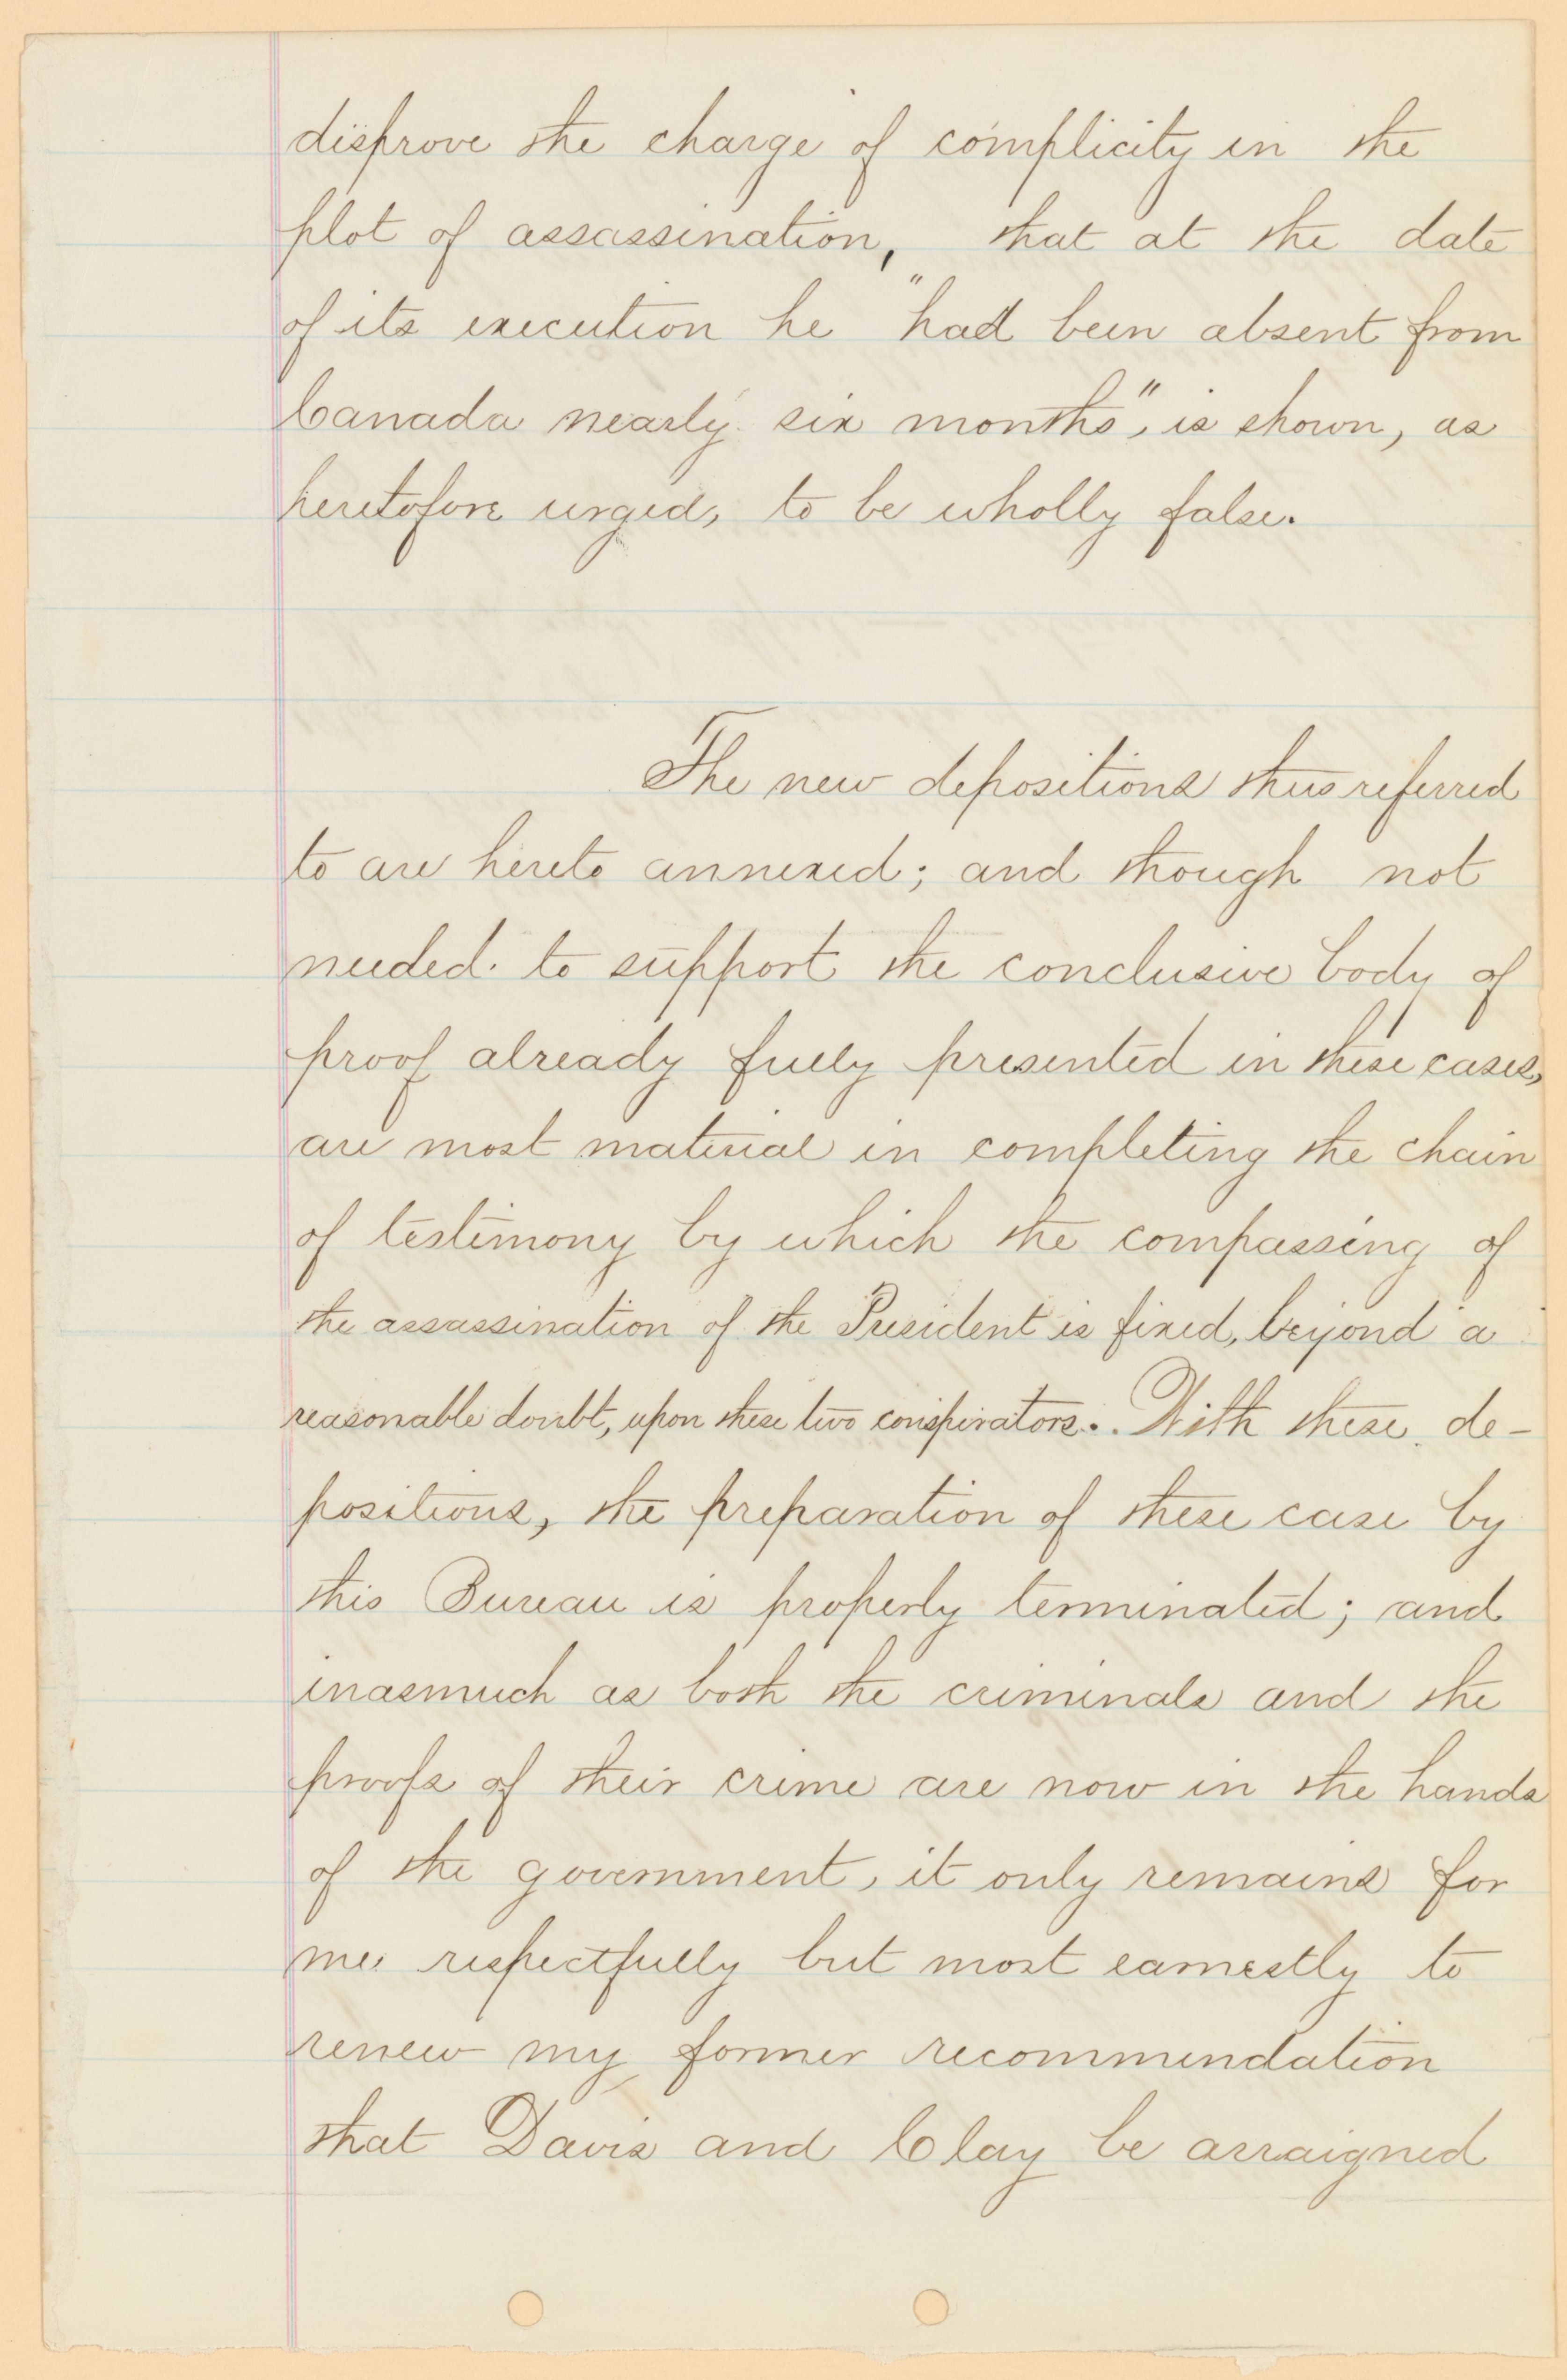 disprove the charge of complicity in the
plot of assassination, that at the date
of its execution he "had been absent from
Canada nearly six months", is shown, as
heretofore urged, to be wholly false.
The new depositions thus referred
to are hereto annexed; and though not
needed to support the conclusive body of
proof already fully presented in these cases,
are most material in completing the chain
of testimony by which the compassing of
the assassination of the President is fixed, beyond a
reasonable doubt, upon these two conspirators. With these de-
positions, the preparation of these case by
this Bureau is properly terminated; and
inasmuch as both the criminals and the
proofs of their crime are now in the hands
of the government, it only remains for
me respectfully but most earnestly to
renew my former recommendation
that Davis and Clay be arraigned